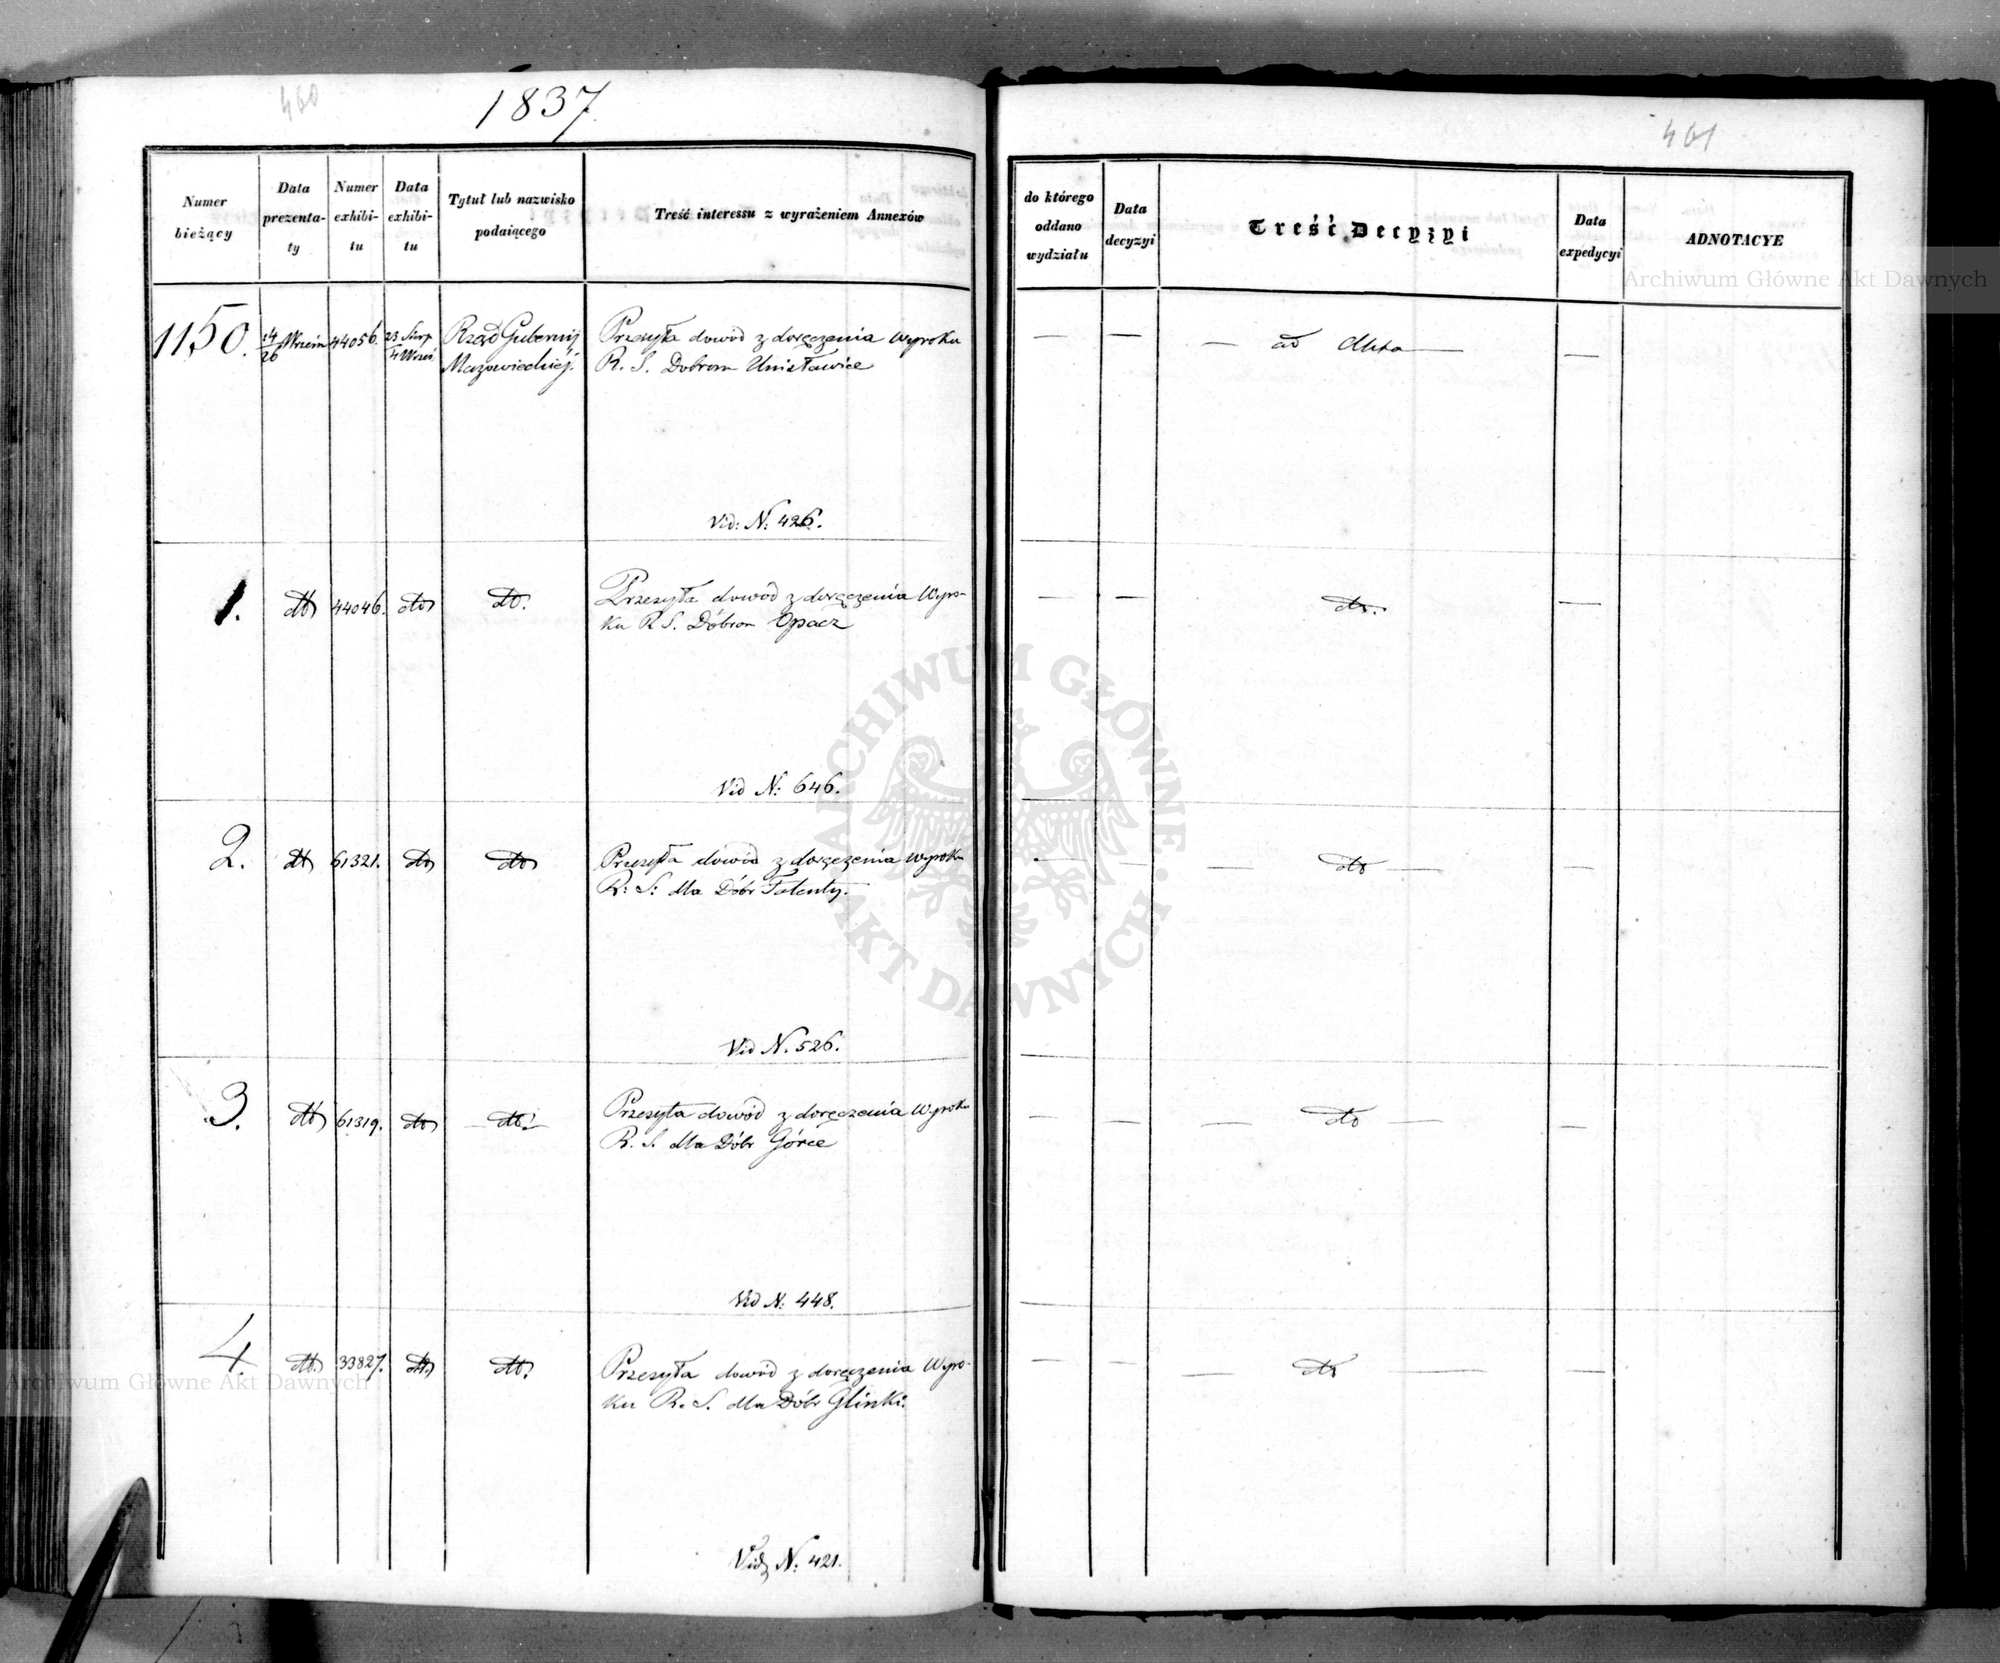 460
1837.
Numer bieżący
Data prezenta-ty
Numer exhibi-tu
Data exhibi-tu
Tytuł lub nazwisko podaiącego
Treść interessu z wyrażeniem Annexów
1150.
14/26 Wrześn
44056.
23 Sierp
4 Wrześ
Rząd Gubernij
Mazowieckiéj.
Przesyła dowód z doręczenia Wyroku
R. S. Dobrom Unisławice
Vid: N: 426.
1.
dto
44046.
dto
dto.
Przesyła dowód z doręczenia Wyro-
ku R S. Dóbrom Opacz
Vid N: 646.
2.
dto
61321.
dto
dto
Przesyła dowód z doręczenia Wyroku
R: S: dla Dóbr Talenty.
Vid N. 526.
3.
dto
61319.
dto
dto.
Przesyła dowód z doręczenia Wyroku
R. S. dla Dóbr Górce
Vid N: 448.
4.
dto.
33827.
dto
dto.
Przesyła dowód z doręczenia Wyro-
ku R. S. dla Dóbr Glinki.
Vid N: 421.
461
do którego oddano wydziału
Data decyzyi
Treść Decyzyi
Data expedycyi
ADNOTACYE
— — — ad Akta — —
— — dto. —
— — — dto — —
— — — dto — —
— — — dto — —
Archiwum Główne Akt Dawnych
ARCHIWUM GŁÓWNE AKT DAWNYCH
Archiwum Główne Akt Dawnych